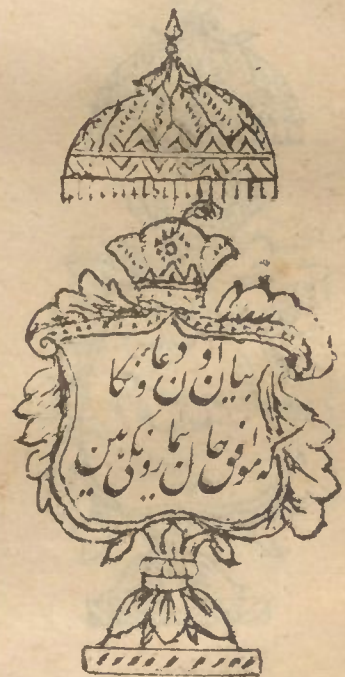 بیان اون دعاؤنکا
که موافق حال بیمارونکی ہین